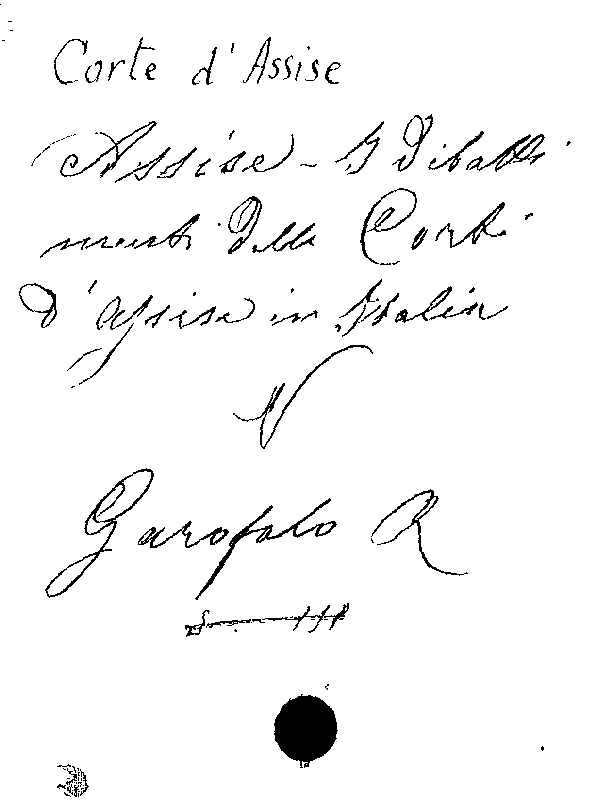 Corte d'Assise
Assise - I Dibatti
menti delle Corti
d'Assise in Italia
V
Garofalo R